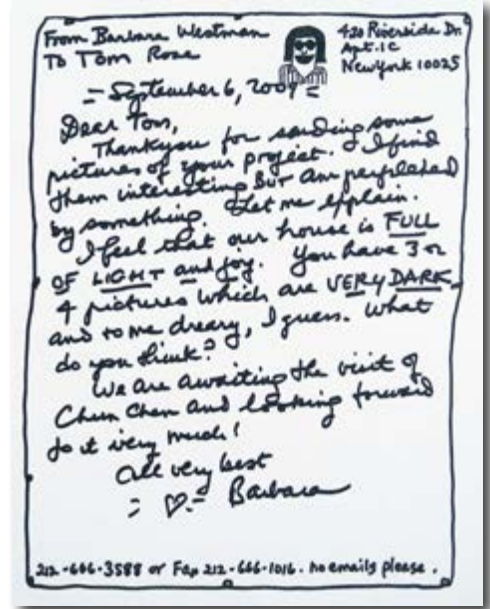 From Barbara Westman
To Tom Rose
420 Riverside Dr.
Apt. 1C
New York 10025
= September 6, 2009 =
Dear Tom,
Thankyou for sending some
pictures of your project. I find
them interesting BUT am perplexed
by something. Let me explain.
I feel that our house is FULL
OF LIGHT and joy. You have 3 or
4 pictures which are VERY DARK
and to me dreary, I guess. What
do you think?
We are awaiting the visit of
Chun Chen and looking forward
to it very much!
All very best
= ♡ = Barbara
212-666-3588 or Fax 212-666-1016. no emails please.